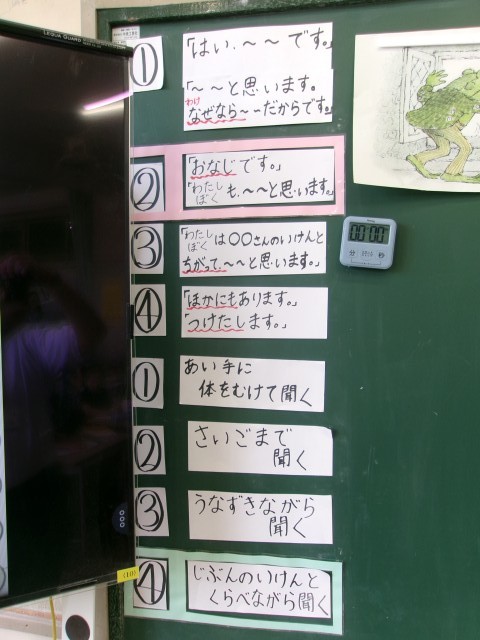 LEQUA GUARD
①
「はい、〜〜です。」
「〜〜と思います。
わけ
なぜなら〜〜だからです。」
②
「おなじです。」
「わたし
ぼく も、〜〜と思います。」
③
「わたし
ぼく は〇〇さんのいけんと
ちがって、〜〜と思います。」
④
「ほかにもあります。」
「つけたします。」
①
あい手に
体をむけて聞く
②
さいごまで
聞く
③
うなずきながら
聞く
④
じぶんのいけんと
くらべながら聞く
00'00"
分 秒
(10)